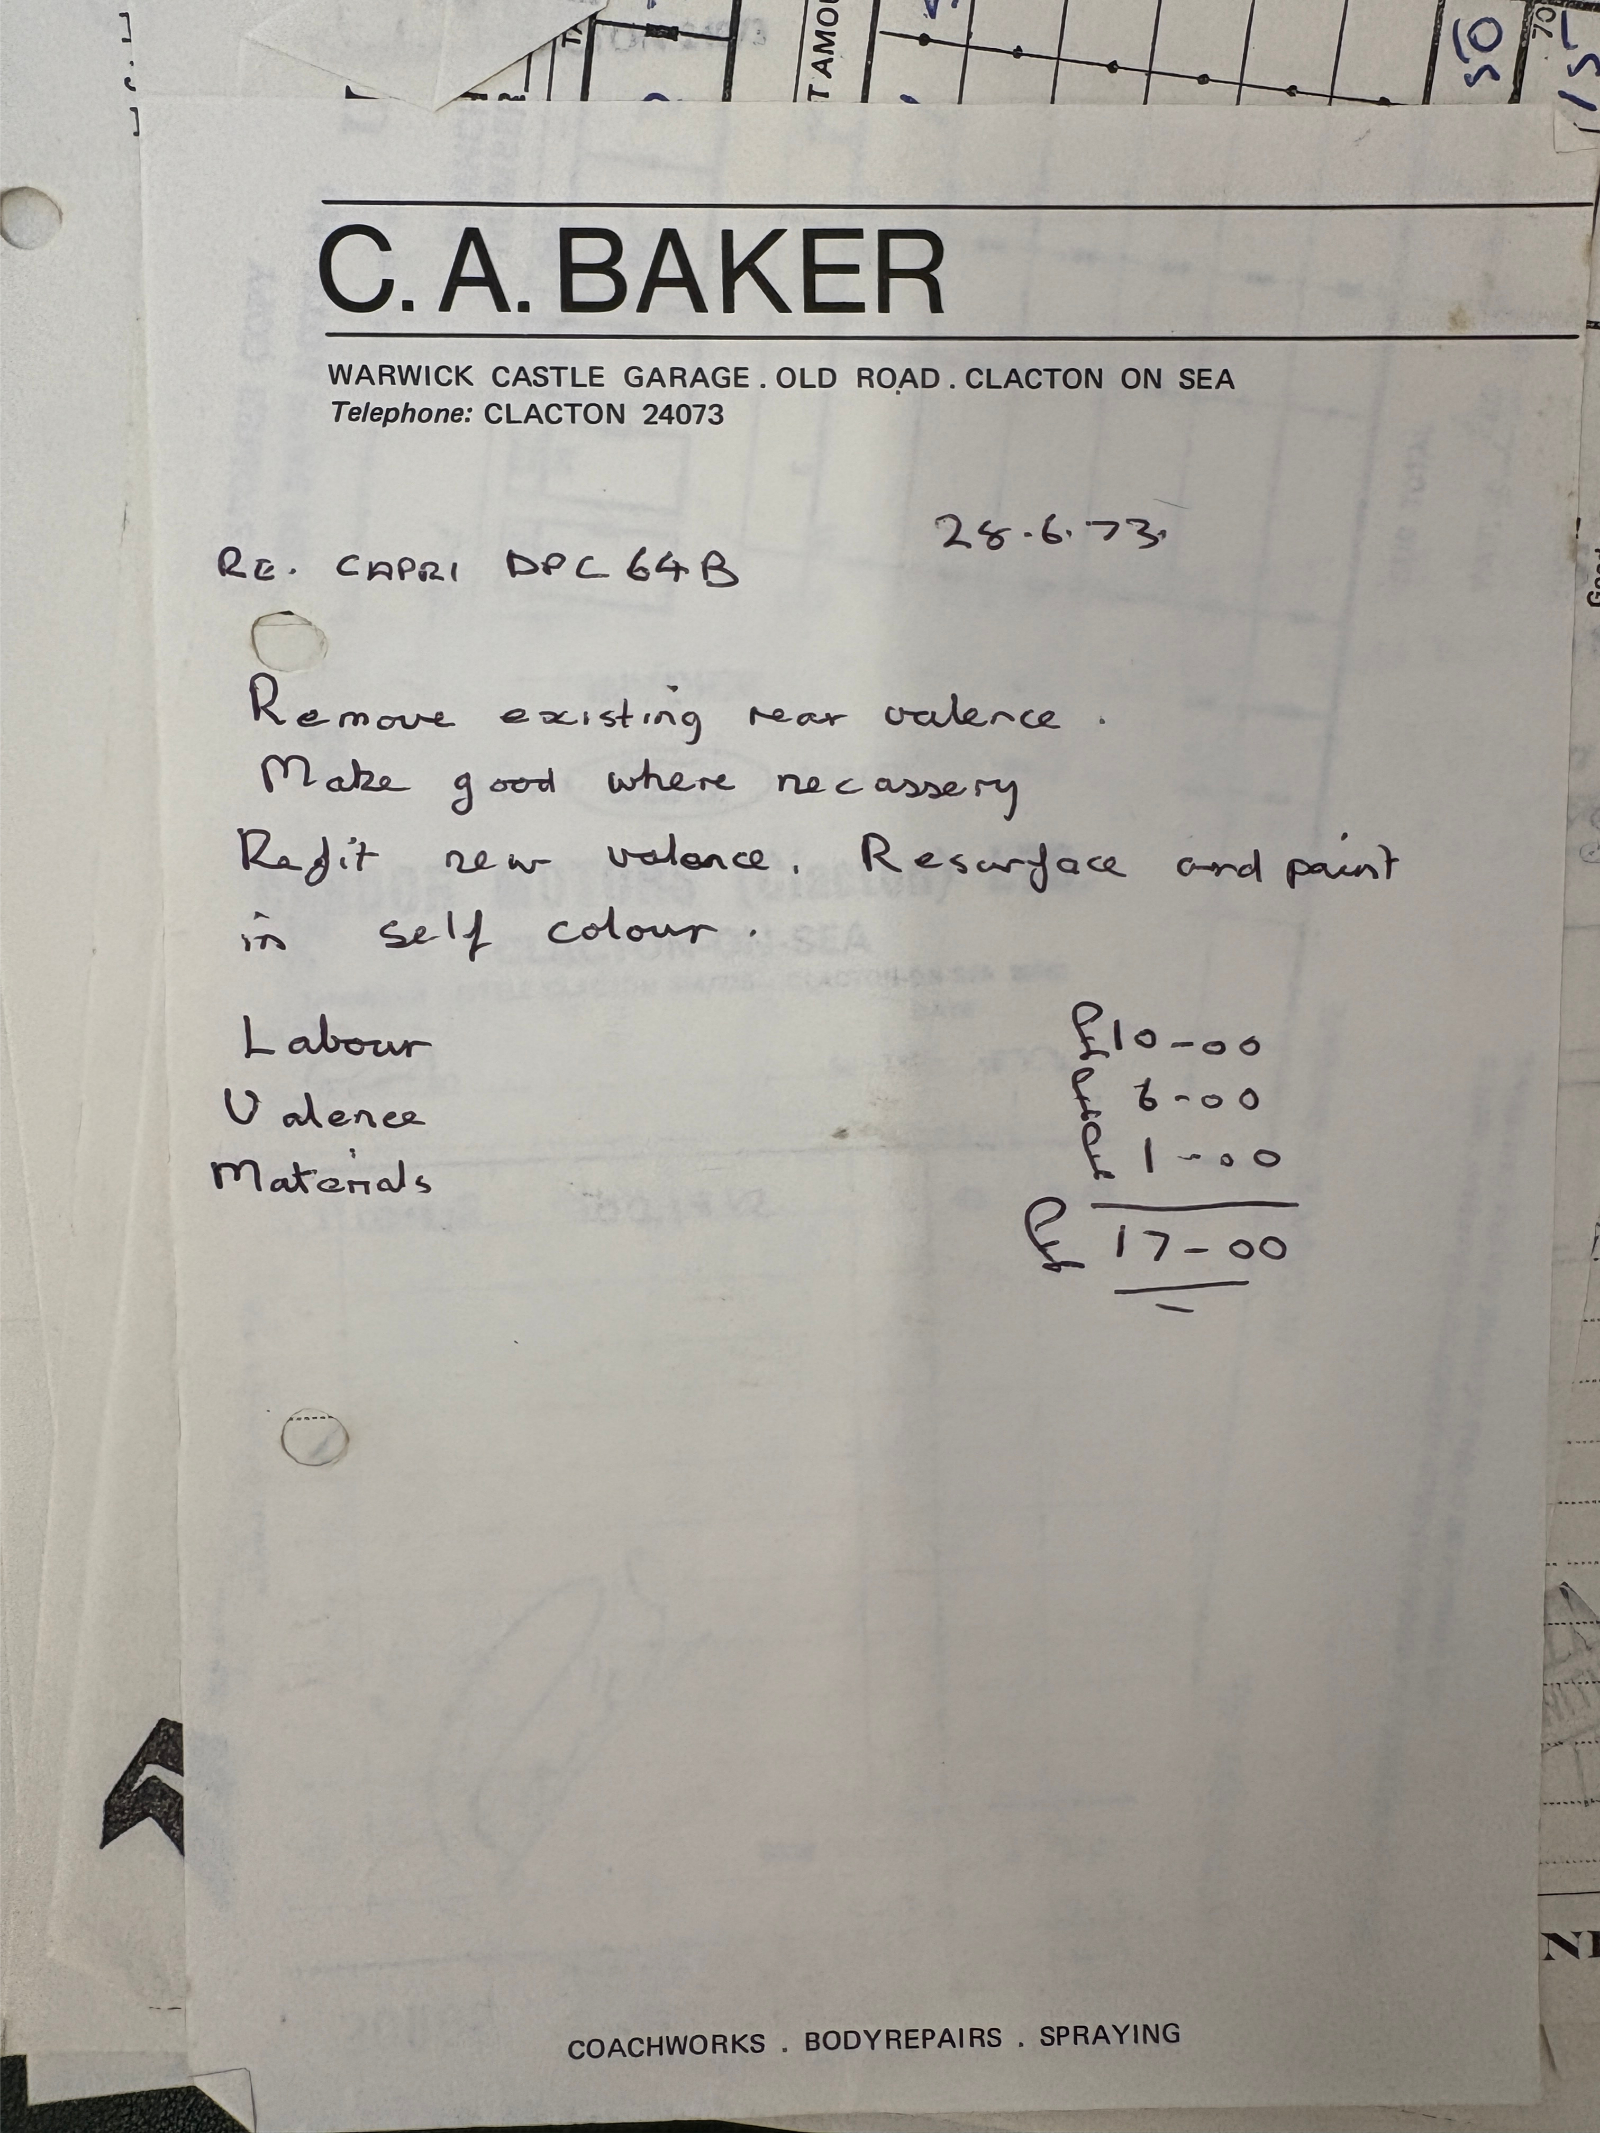 TAMOU
50
70
C. A. BAKER
WARWICK CASTLE GARAGE . OLD ROAD . CLACTON ON SEA
Telephone: CLACTON 24073
28.6.73.
RE. CAPRI DPC 64B
Remove existing rear valence .
Make good where necassery
Refit new valence. Resurface and paint
in self colour .
Labour £10-00
Valence £ 6-00
Materials £ 1-00
£ 17-00
COACHWORKS . BODYREPAIRS . SPRAYING